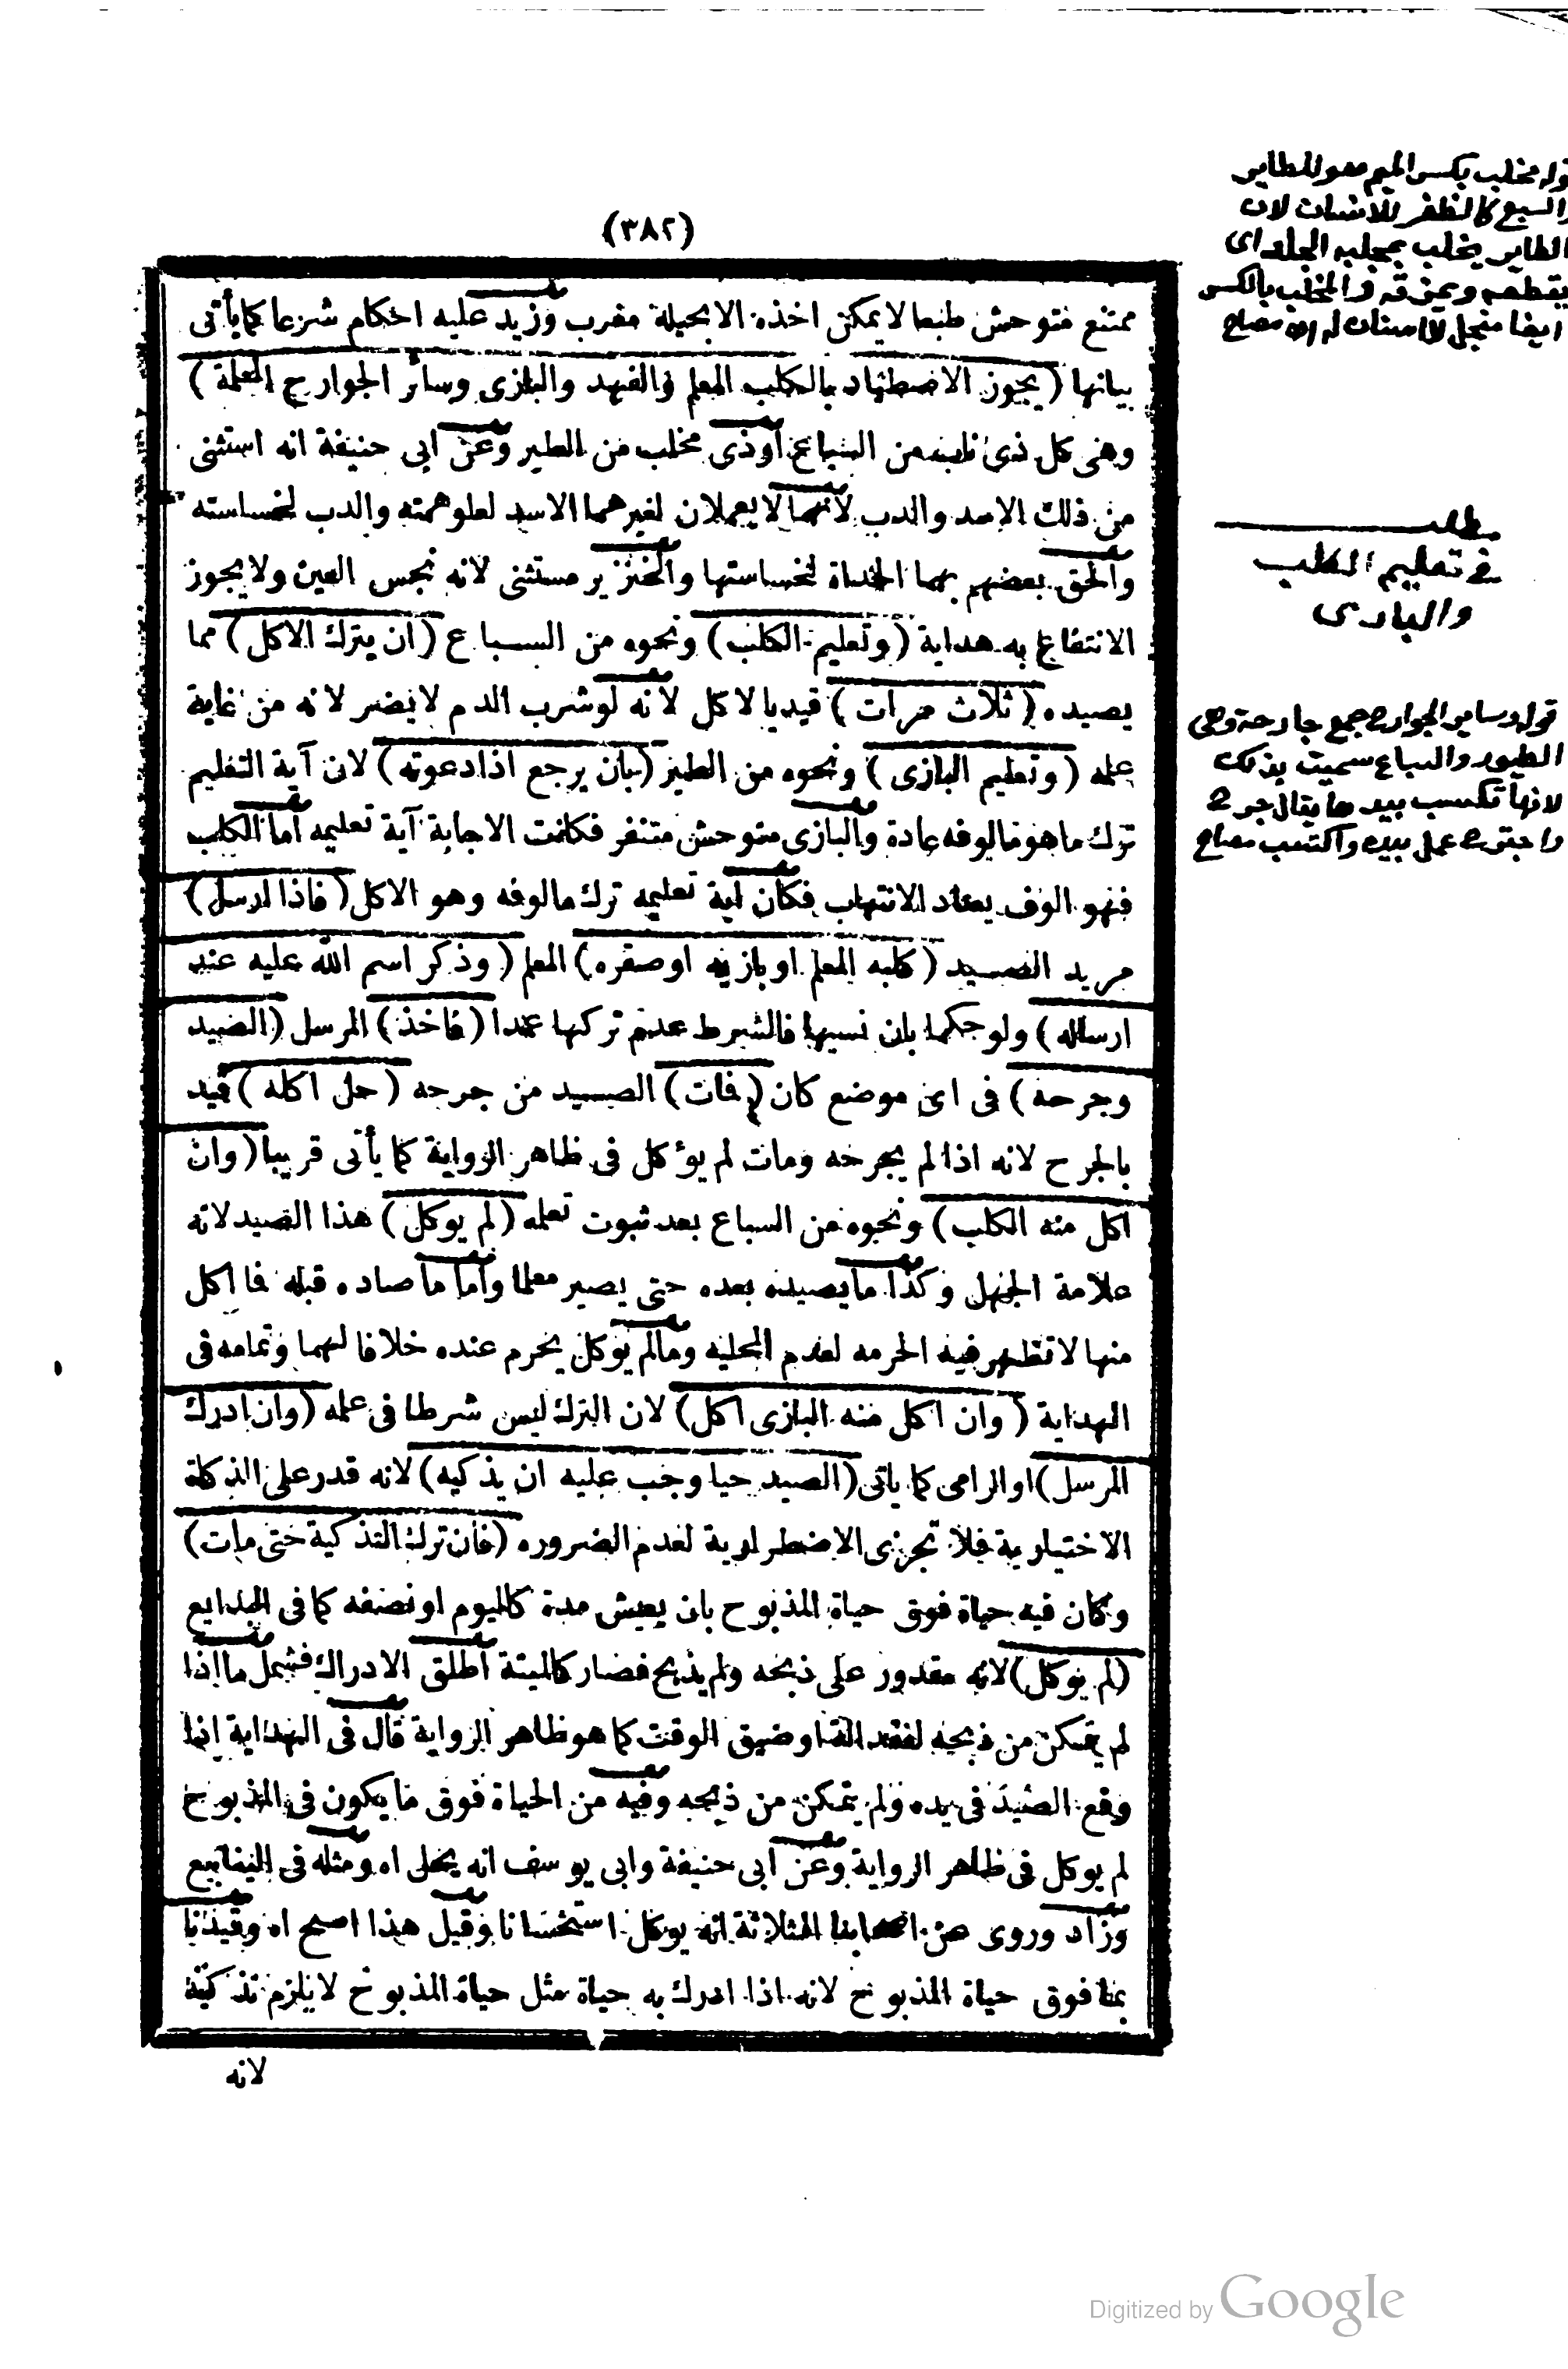 (٣٨٢)
ممتنع متوحش طبعا لا يمكن اخذه الا بحيلة مغرب وزيد عليه احكام شرعا كما يأتى
بيانها (يجوز الاصطياد بالكلب المعلم والفهد والبازى وسائر الجوارح المعلمة)
وهى كل ذى ناب من السباع أوذى مخلب من الطير وعن ابى حنيفة انه استثنى
من ذلك الاسد والدب لانهما لا يعملان لغيرهما الاسد لعلوهمته والدب لخساسته
وألحق بعضهم بهما الحدأة لخساستها والخنزير مستثنى لانه نجس العين ولا يجوز
الانتفاع به هداية (وتعليم الكلب) ونحوه من السباع (ان يترك الاكل) مما
يصيده (ثلاث مرات) قيد بالاكل لانه لوشرب الدم لايضر لانه من غاية
علمه (وتعليم البازى) ونحوه من الطير (بان يرجع اذا دعوته) لان آية التعليم
ترك ماهو مالوفه عادة والبازى متوحش متنفر فكانت الاجابة آية تعليمه أما الكلب
فهو الوف يعتاد الانتهاب فكان آية تعليمه ترك مالوفه وهو الاكل (فاذا ارسل)
مريد الصيد (كلبه المعلم او بازيه او صقره) المعلم (وذكر اسم الله عليه عند
ارساله) ولو حكما بان نسيها فالشرط عدم تركها عمدا (فاخذ) المرسل (الصيد
وجرحه) فى اى موضع كان (فمات) الصيد من جرحه (حل اكله) قيد
بالجرح لانه اذا لم يجرحه ومات لم يؤكل فى ظاهر الرواية كما يأتى قريبا (وان
اكل منه الكلب) ونحوه من السباع بعد ثبوت تعلمه (لم يوكل) هذا الصيد لانه
علامة الجهل وكذا ما يصيده بعده حتى يصير معلما وأما ما صاده قبله فما اكل
منها لا تظهر فيه الحرمه لعدم المحليه ومالم يوكل يحرم عنده خلافا لهما وتمامه فى
الهداية (وان اكل منه البازى اكل) لان الترك ليس شرطا فى علمه (وان ادرك
المرسل) او الرامى كما ياتى (الصيد حيا وجب عليه ان يذكيه) لانه قدر على الذكاة
الاختيارية فلا تجزى الاضطرارية لعدم الضروره (فان ترك التذكية حتى مات)
وكان فيه حياة فوق حياة المذبوح بان يعيش مدة كاليوم او نصفه كما فى البدايع
(لم يوكل) لانه مقدور على ذبحه ولم يذبح فصار كالميتة أطلق الادراك فشمل ما اذا
لم يتمكن من ذبحه لفقد آلة او ضيق الوقت كما هو ظاهر الرواية قال فى الهداية اذا
وقع الصيد فى يده ولم يتمكن من ذبحه وفيه من الحياة فوق ما يكون فى المذبوح
لم يوكل فى ظاهر الرواية وعن ابى حنيفة وابى يوسف انه يحل اه ومثله فى الينابيع
وزاد وروى عن اصحابنا الثلاثة انه يوكل استحسانا وقيل هذا اصح اه وقيدنا
بما فوق حياة المذبوح لانه اذا ادرك به حياة مثل حياة المذبوح لا يلزم تذكيته
لانه
قوله مخلب بكسر الميم هو للطاير
والسبع كالظفر للانسان لان
الطاير يخلب بمخلبه الجلد اى
يقطعه ويمزقه والمخلب بالكسر
ايضا منجل لا اسنان له اه مصباح
مطلب
فى تعليم الكلب
والبازى
قوله وساير الجوارح جمع جارحة وهى
الطيور والسباع سميت بذلك
لانها تكسب بيدها يقال جرح
واجترح عمل بيده واكتسب مصباح
Digitized by Google